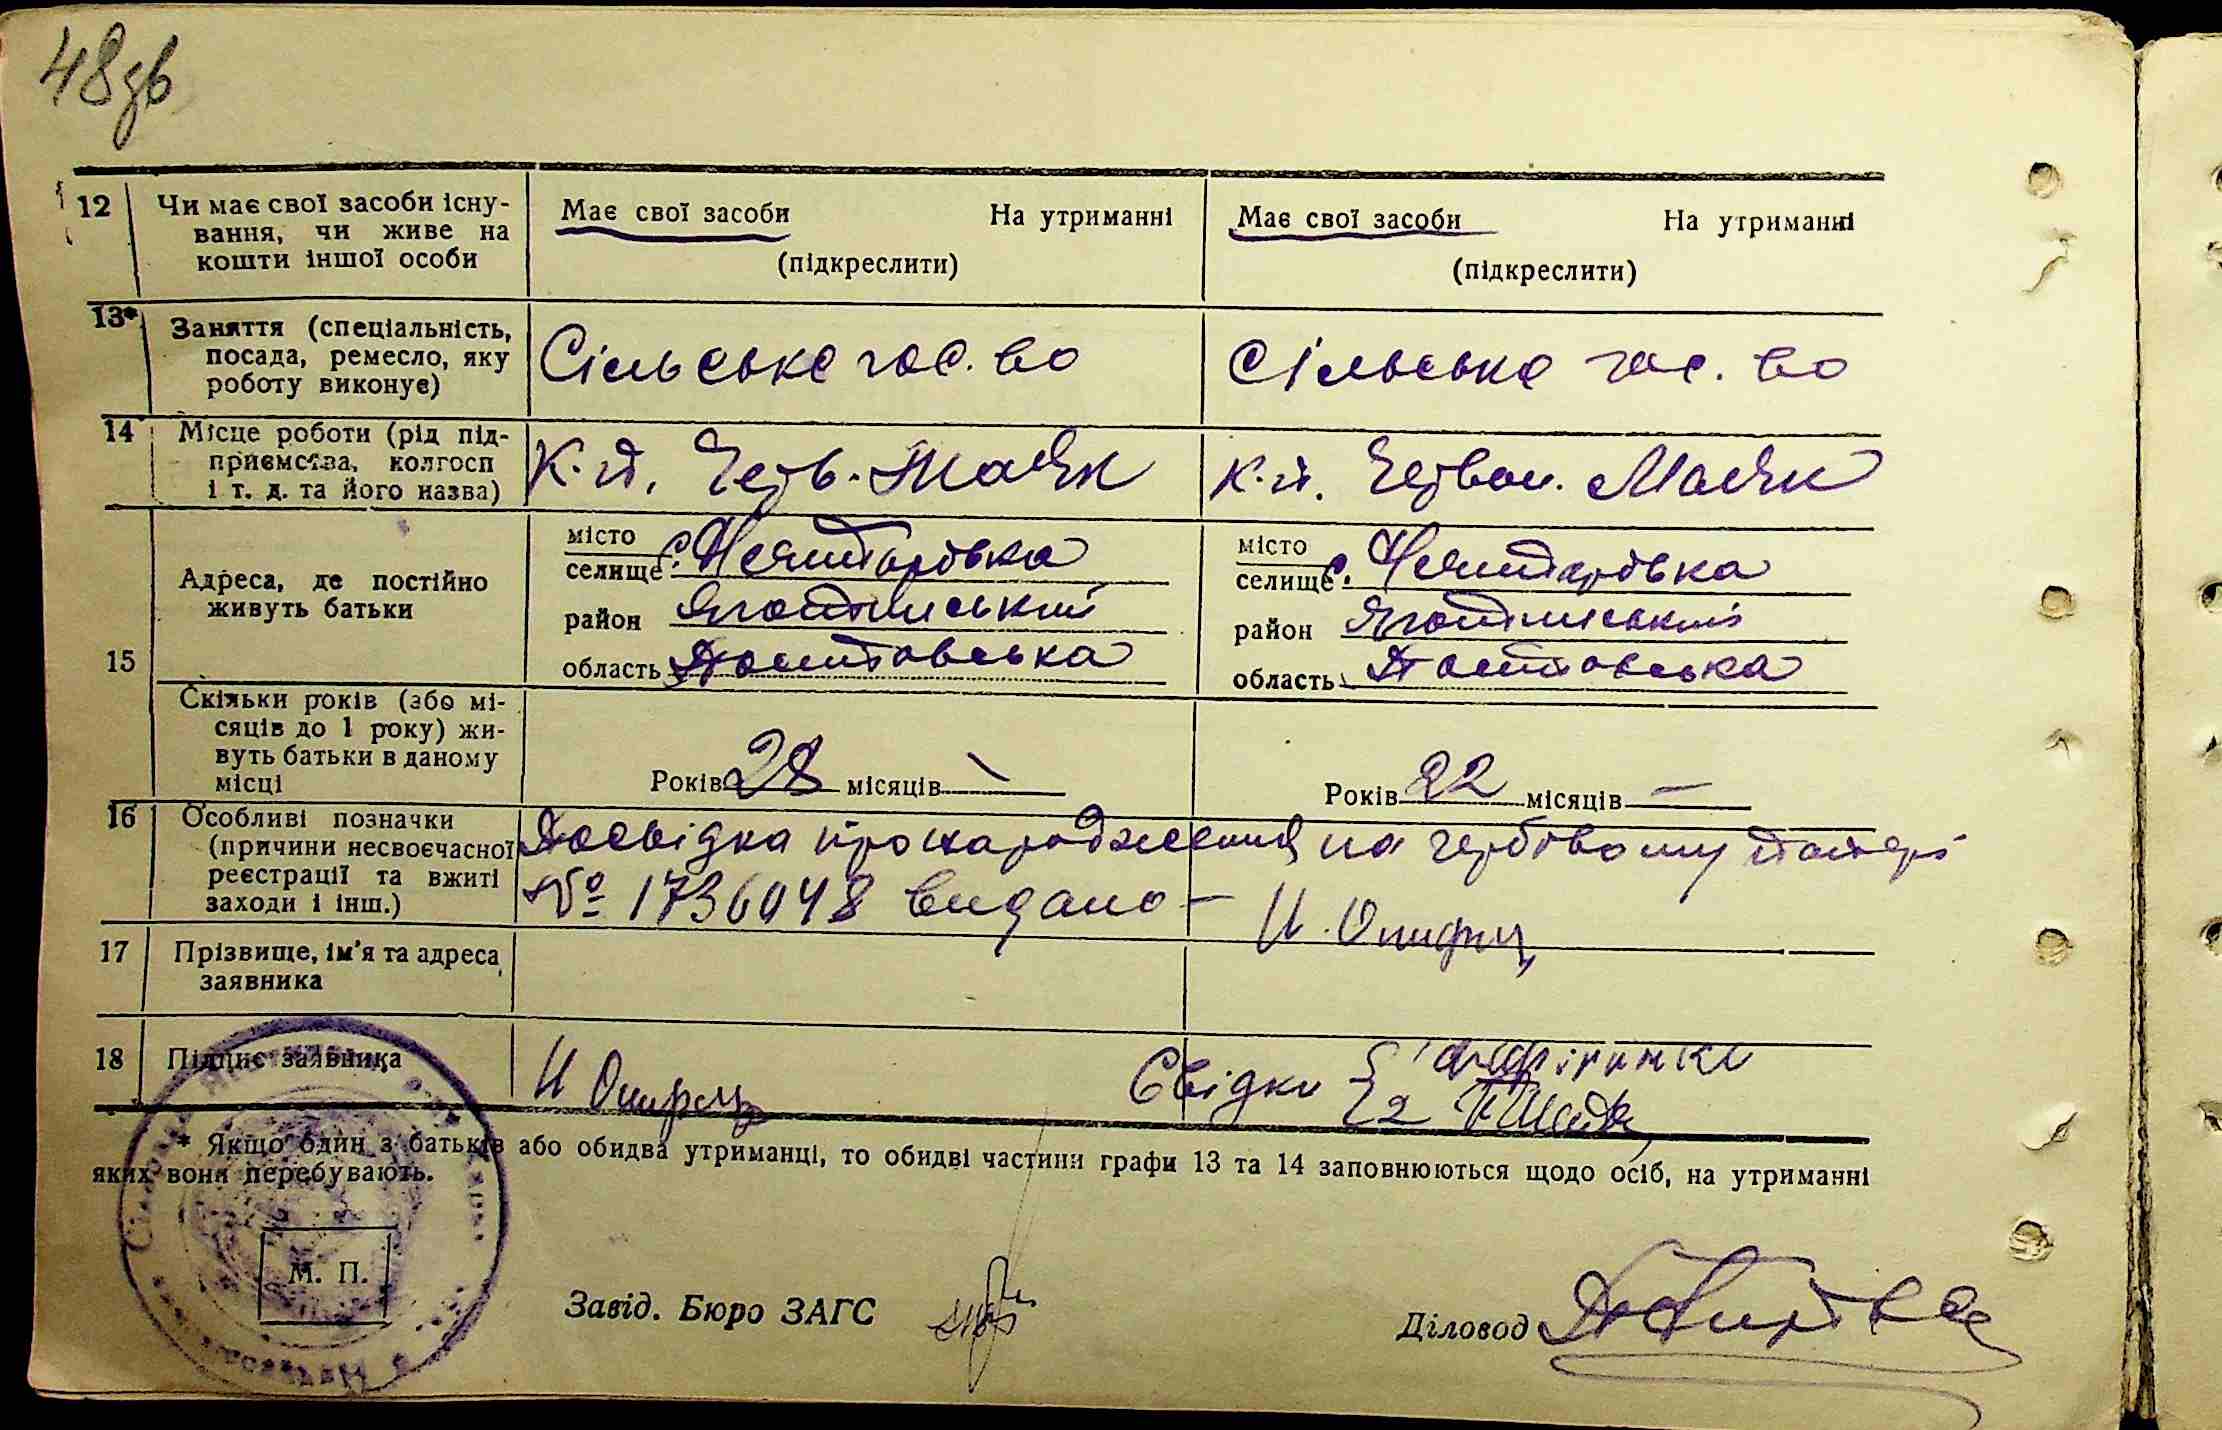 48зв
12 Чи має свої засоби існу- Має свої засоби На утриманні Має свої засоби На утриманні
вання, чи живе на
кошти іншої особи (підкреслити) (підкреслити)
13* Заняття (спеціальність,
посада, ремесло, яку Сільське гос. во Сільське гос. во
роботу виконує)
14 Місце роботи (рід під-
приємства, колгосп К.г. Черв. Маяк К.г. Червон. Маяк
і т. д. та його назва)
15 Адреса, де постійно
живуть батьки
місто
селище с.
район Яготинський
область Полтавська
місто
селище с.
район Яготинський
область Полтавська
Скільки років (або мі-
сяців до 1 року) жи-
вуть батьки в даному
місці
Років 28 місяців — Років 22 місяців —
16 Особливі позначки
(причини несвоєчасної
реєстрації та вжиті
заходи і інш.)
Посвідка про народження на гербовому папері
№ 1736048 видано —
17 Прізвище, ім'я та адреса
заявника
18 Підпис заявника
Свідки 1
2
* Якщо один з батьків або обидва утриманці, то обидві частини графи 13 та 14 заповнюються щодо осіб, на утриманні
яких вони перебувають.
М. П.
Завід. Бюро ЗАГС Діловод